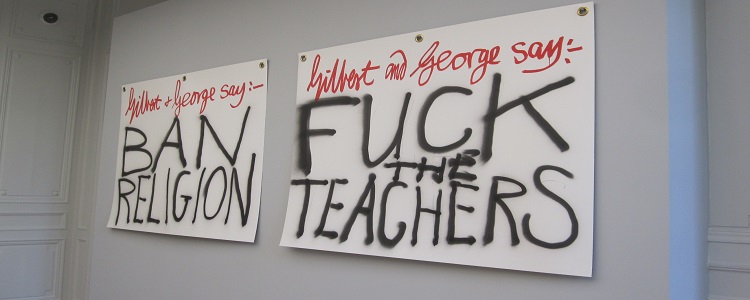 Gilbert + George say:-
BAN
RELIGION
Gilbert and George say:-
FUCK
THE
TEACHERS